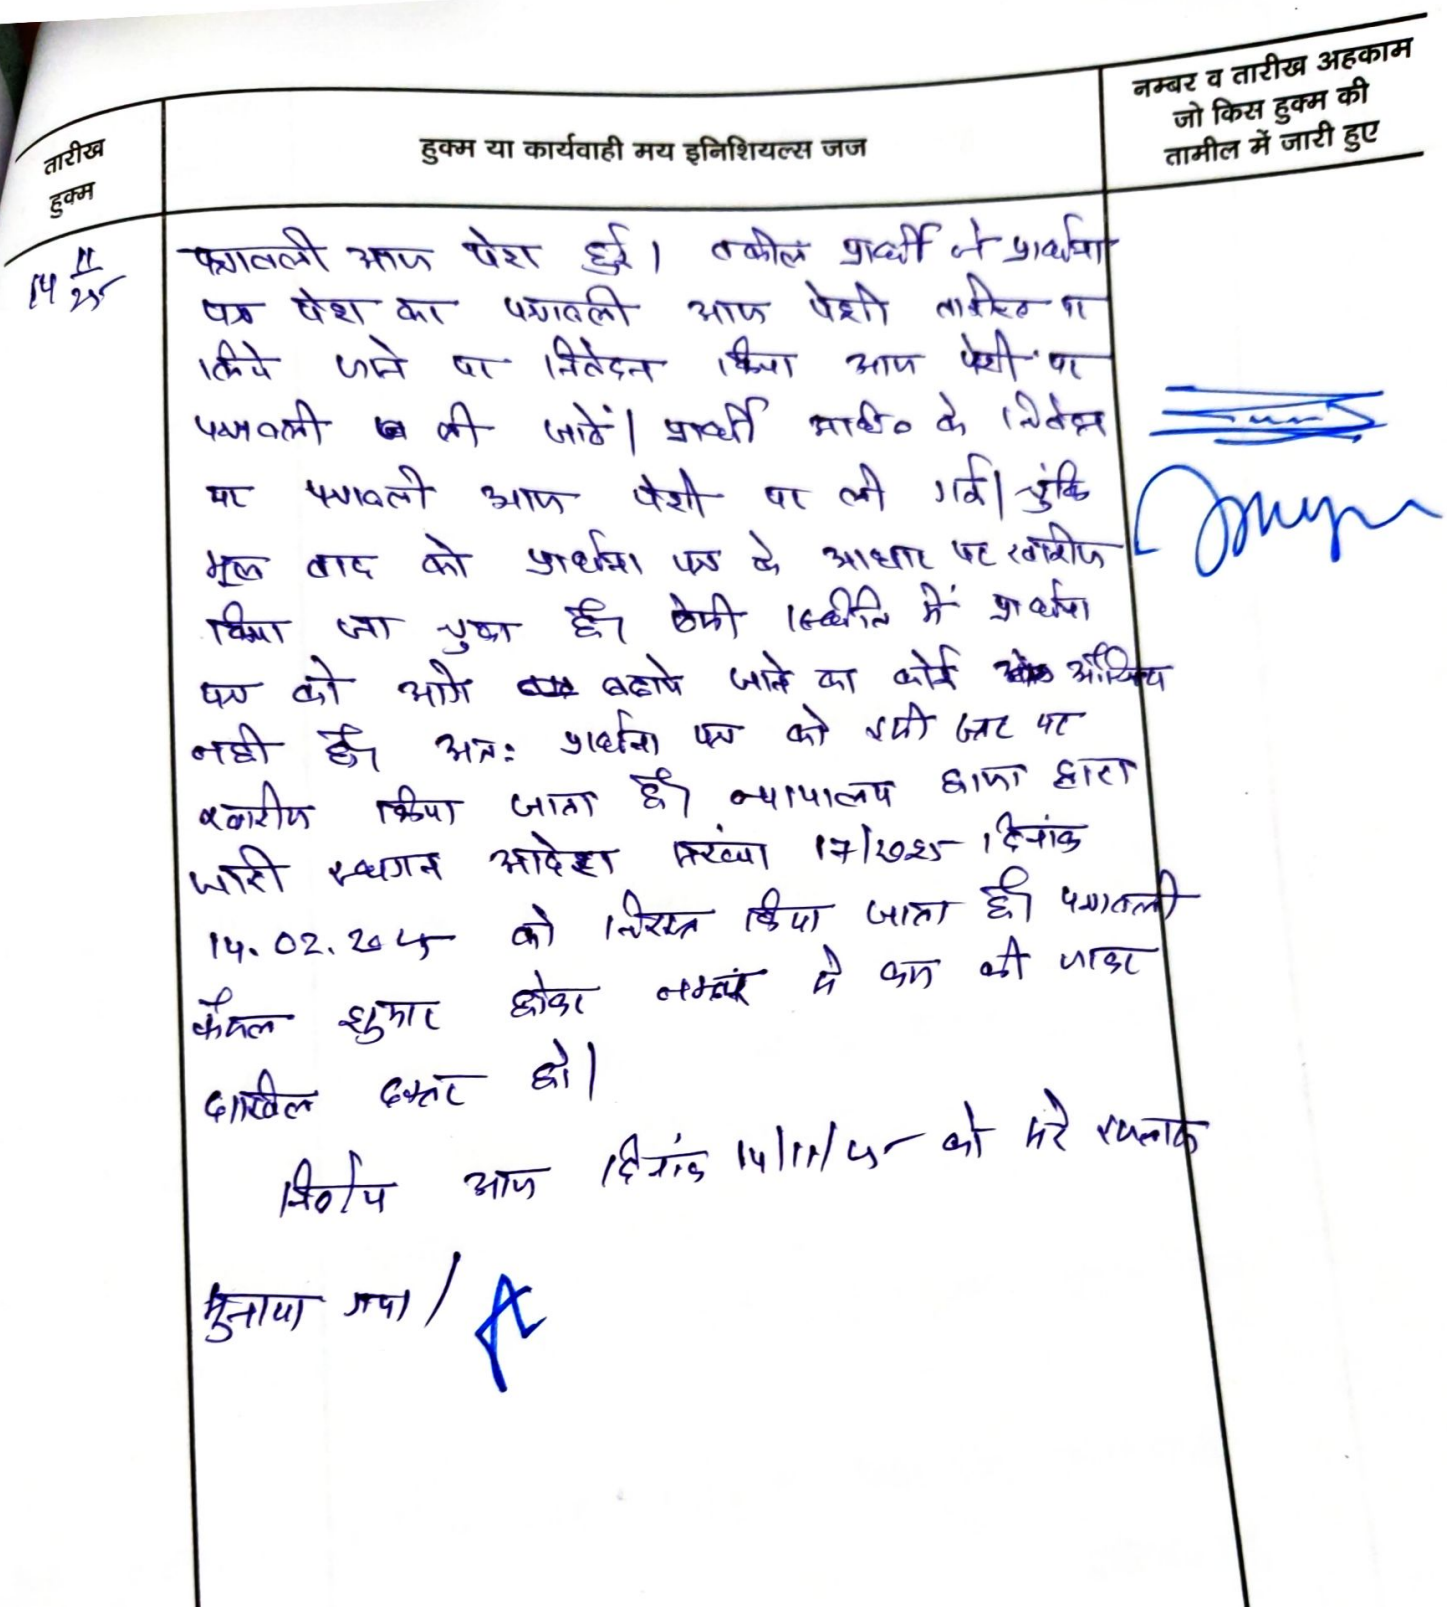 तारीख
हुक्म
हुक्म या कार्यवाही मय इनिशियल्स जज
नम्बर व तारीख अहकाम
जो किस हुक्म की
तामील में जारी हुए
14 11/25
पत्रावली आज पेश हुई। वकील प्रार्थी ने प्रार्थना
पत्र पेश कर पत्रावली आज पेशी तारीख पर
लिये जाने का निवेदन किया आज पेशी पर
पत्रावली ली जावें। प्रार्थी के निवेदन
पर पत्रावली आज पेशी पर ली गई। चुंकि
मूल वाद को प्रार्थना पत्र के आधार पर खारीज
किया जा चुका है। ऐसी स्थिति में प्रार्थना
पत्र को आगे बढाये जाने का कोई औचित्य
नही है। अतः प्रार्थना पत्र को इसी स्तर पर
खारीज किया जाता है। न्यायालय हाजा द्वारा
जारी स्थगन आदेश संख्या 17/2025 दिनांक
14.02.2025 को निरस्त किया जाता है। पत्रावली
फैसल शुमार होकर नम्बर से कम की जाकर
दाखिल दफ्तर हो।
निर्णय आज दिनांक 14/11/25 को सरे इजलास
सुनाया गया।